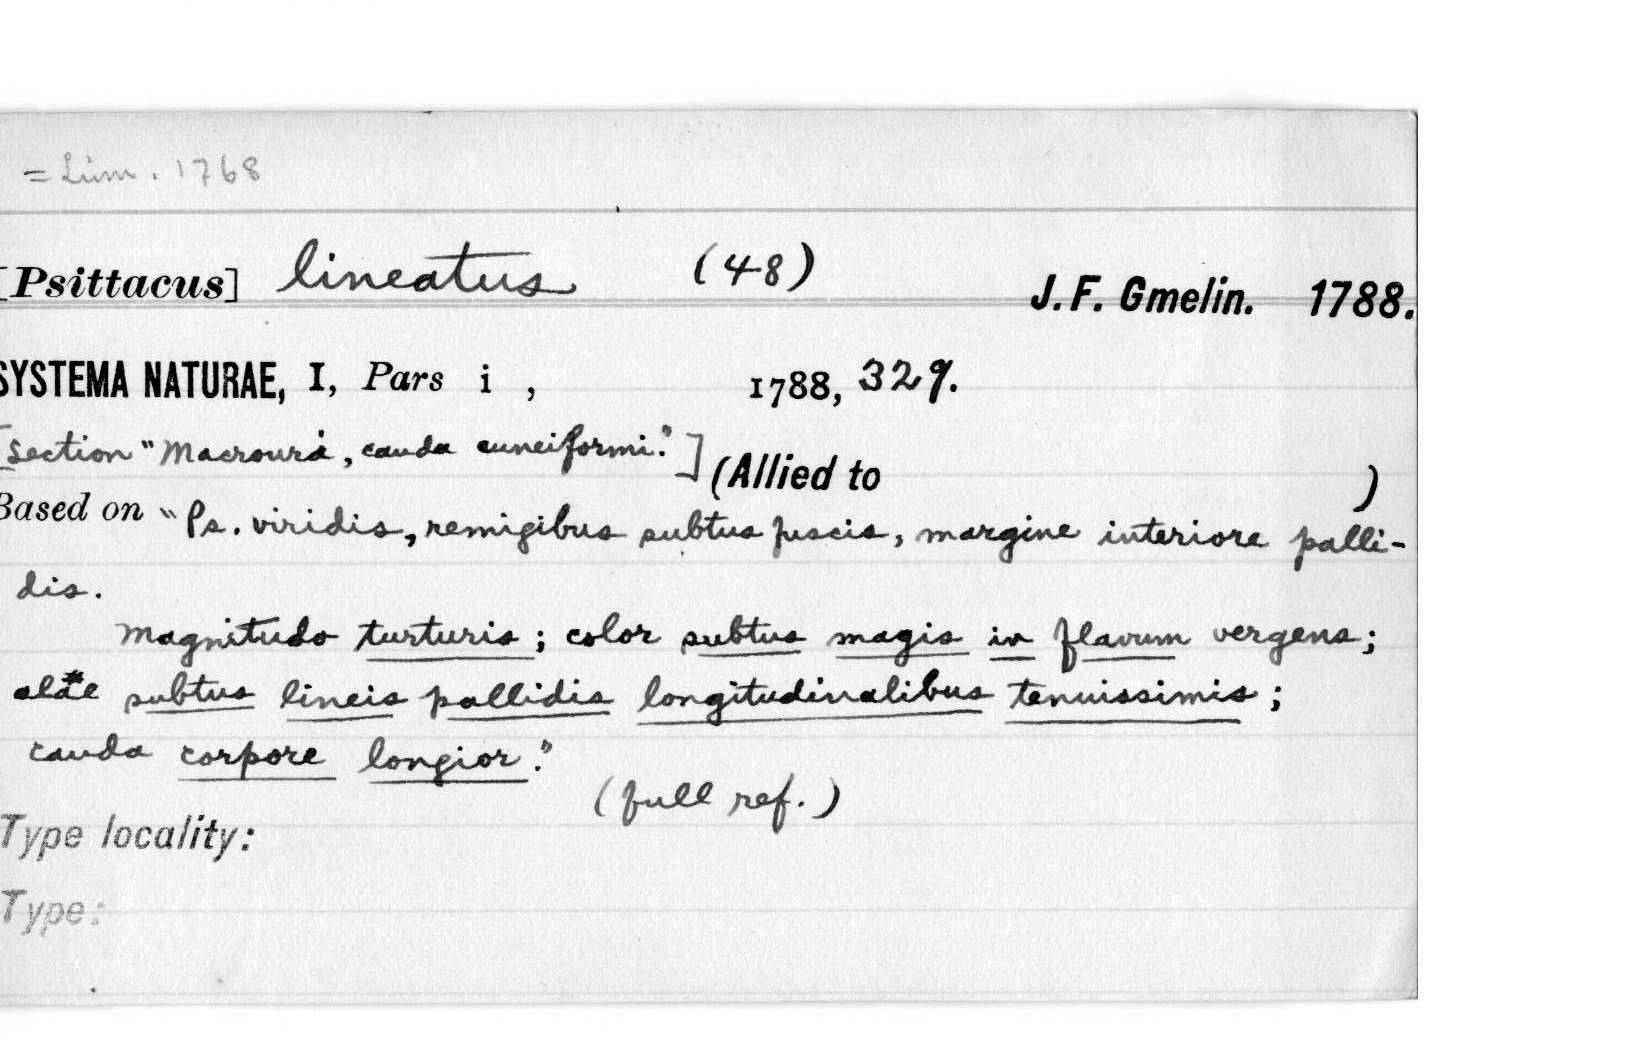 = Linn. 1768
[Psittacus] lineatus (48) J. F. Gmelin. 1788.
SYSTEMA NATURAE, I, Pars i , 1788, 329.
[Section "Macrouri, cauda cuneiformi."] (Allied to )
Based on "Ps. viridis, remigibus subtus fuscis, margine interiore palli-
dis.
Magnitudo turturis; color subtus magis in flavum vergens;
alae subtus lineis pallidis longitudinalibus tenuissimis;
cauda corpore longior."
(full ref.)
Type locality:
Type: